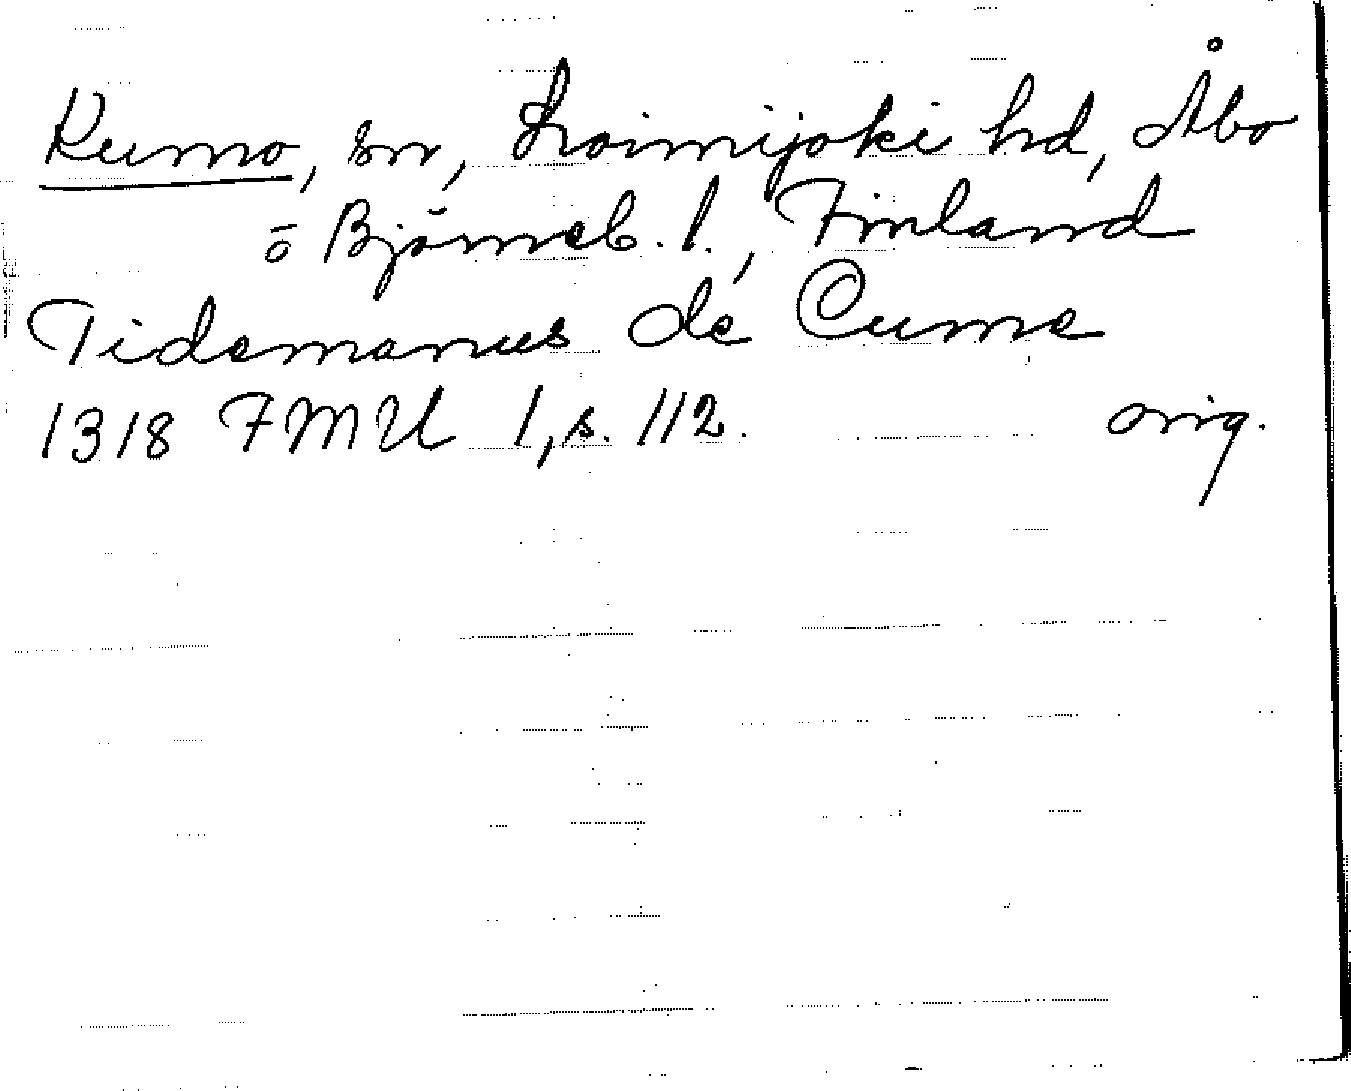 Kumo, sn, Loimijoki hd, Åbo
o Björneb. l., Finland
Tidemanus de Cume
1318 FMU 1, s. 112. orig.